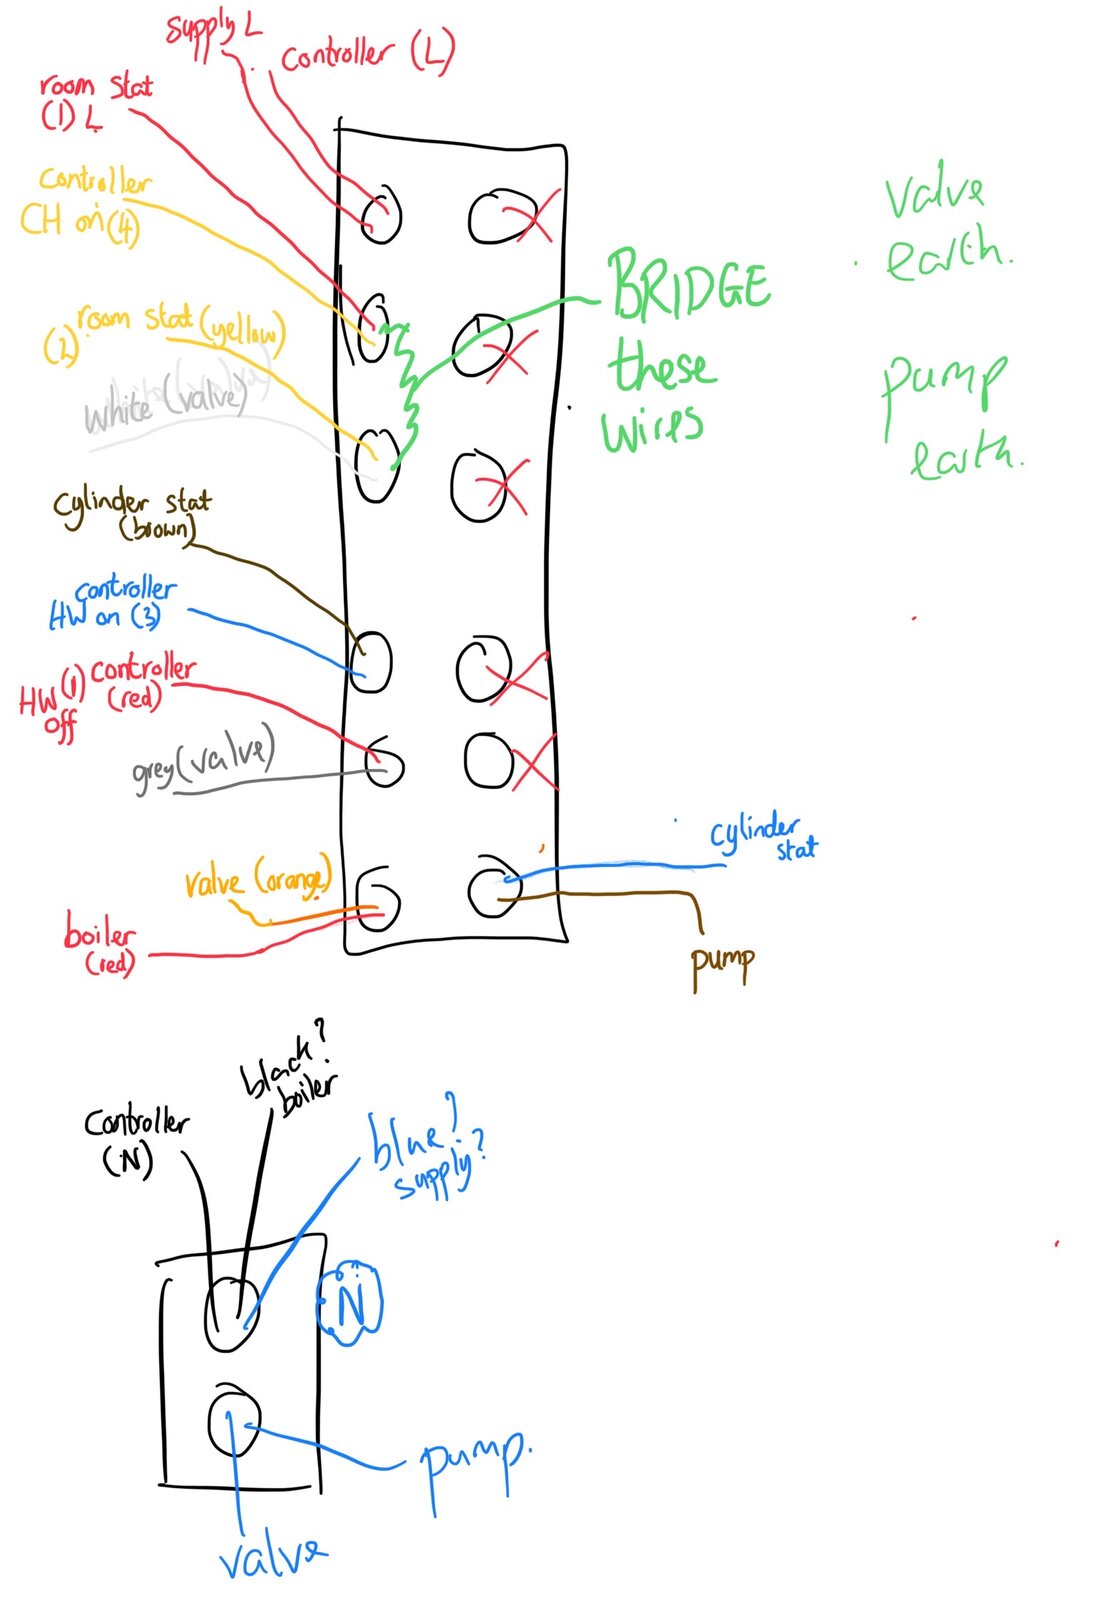 supply L
controller (L)
room stat
(1) L
controller
CH on (4)
room stat (yellow)
(2)
white (valve)
cylinder stat
(brown)
controller
HW on (3)
HW (1) controller
off (red)
grey (valve)
valve (orange)
boiler
(red)
BRIDGE
these
wires
valve
earth.
pump
earth.
cylinder
stat
pump
black?
boiler
controller
(N)
blue?
supply?
N
pump.
valve